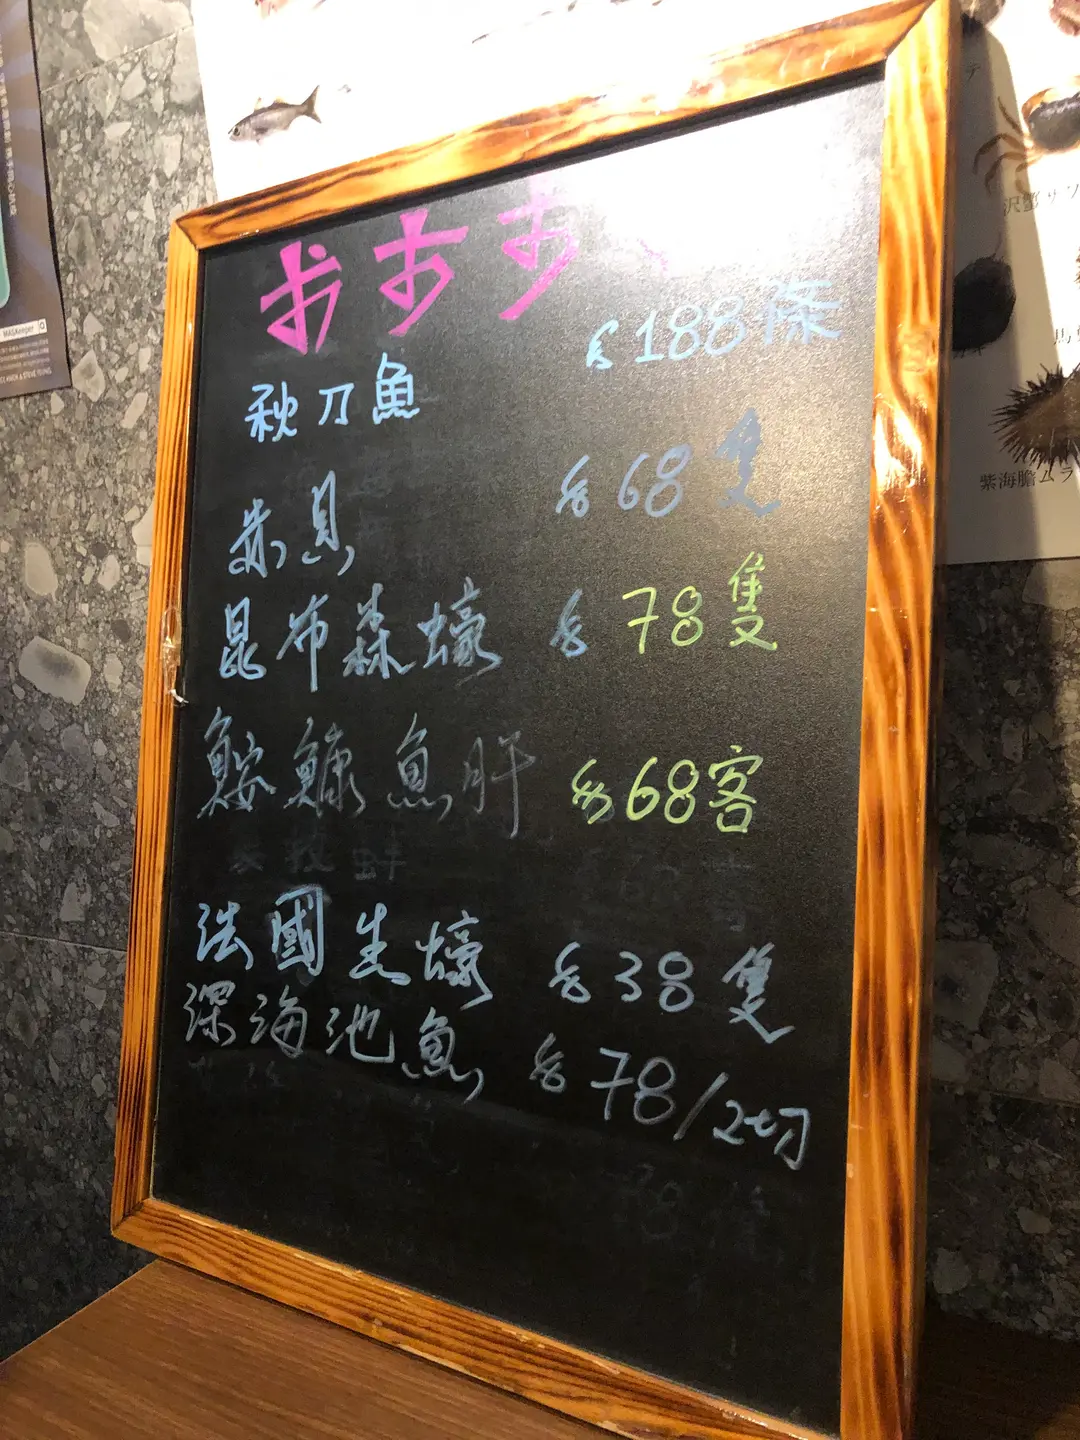 おすす
秋刀魚 $188條
赤貝 $68隻
昆布森蠔 $78隻
鮟鱇魚肝 $68客
法國生蠔 $38隻
深海池魚 $78/2切
沢蟹サワ
紫海膽ムラ
MASKeeper